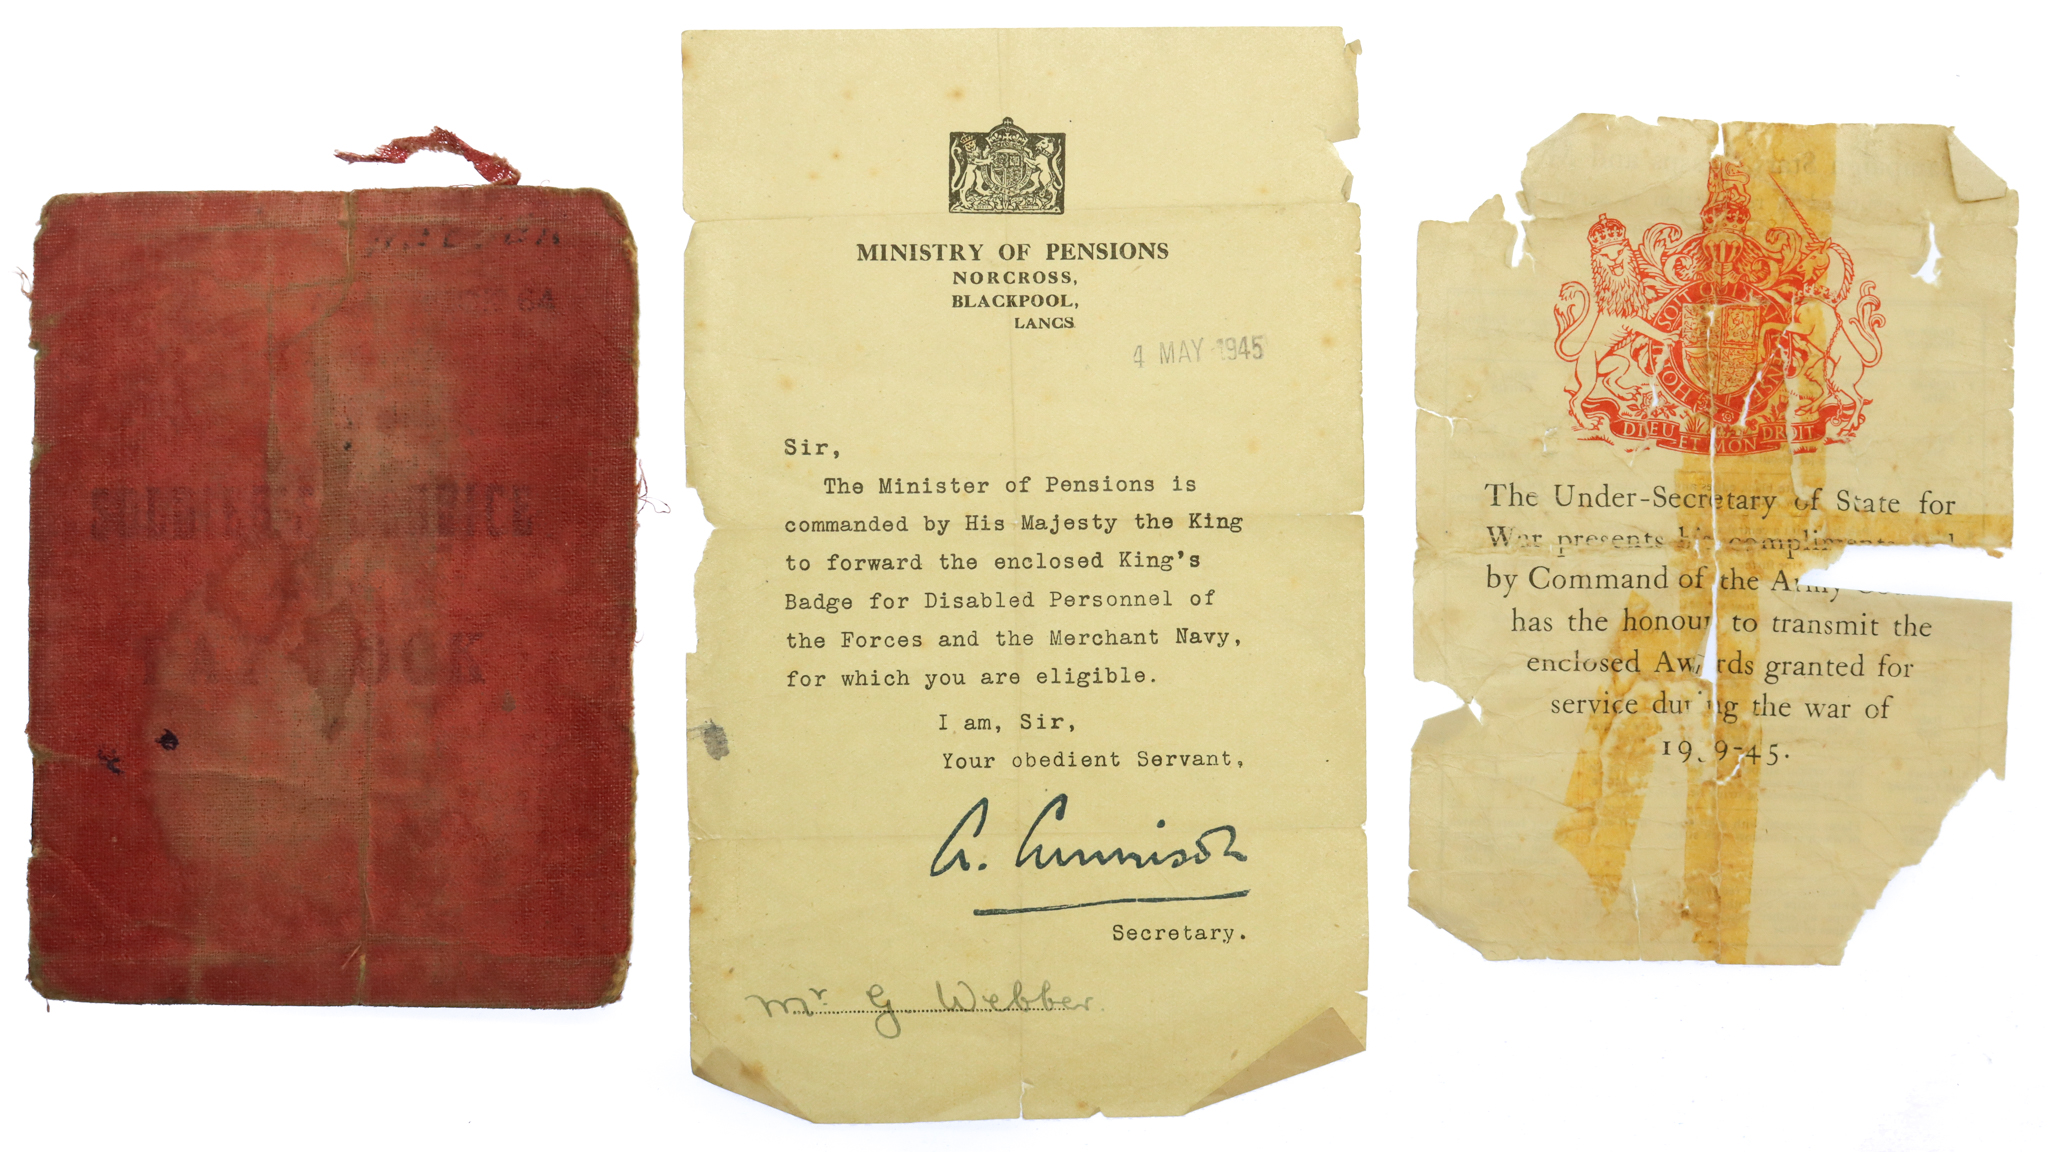 SOLDIER'S SERVICE
PAY BOOK
MINISTRY OF PENSIONS
NORCROSS,
BLACKPOOL,
LANCS
4 MAY 1945
Sir,
The Minister of Pensions is
commanded by His Majesty the King
to forward the enclosed King's
Badge for Disabled Personnel of
the Forces and the Merchant Navy,
for which you are eligible.
I am, Sir,
Your obedient Servant,
A. Cunnison
Secretary.
Mr G. Webber.
DIEU ET MON DROIT
The Under-Secretary of State for
War presents his compliments and
by Command of the Army
has the honour to transmit the
enclosed Awards granted for
service during the war of
1939-45.